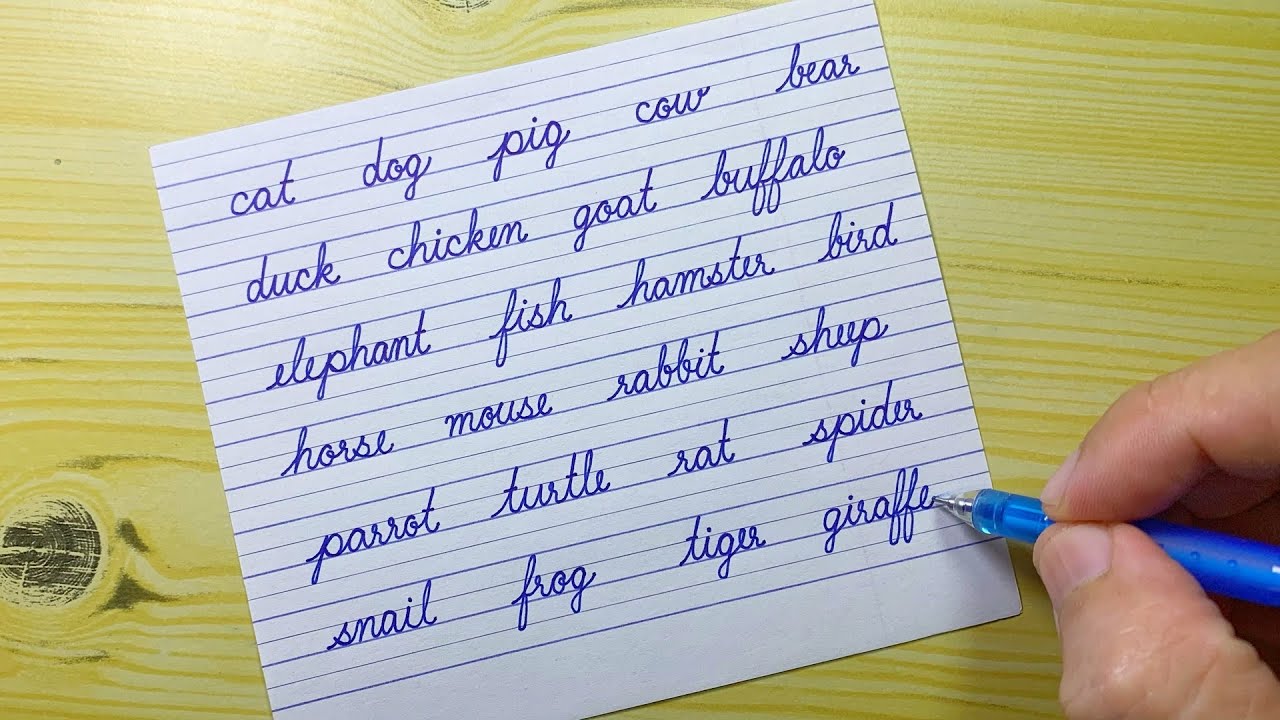 cat dog pig cow bear
duck chicken goat buffalo
elephant fish hamster bird
horse mouse rabbit sheep
parrot turtle rat spider
snail frog tiger giraffe